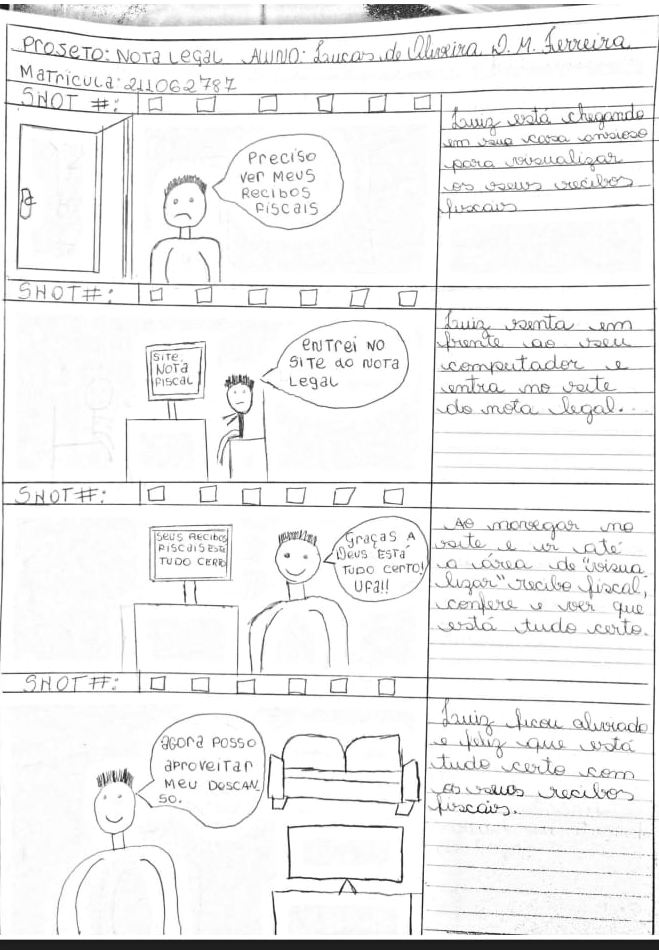 Projeto: Nota Legal Aluno: Lucas de Oliveira D. M. Ferreira
Matricula: 211062787
SHOT #:
Preciso
ver meus
Recibos
Fiscais
Luiz está chegando
em sua casa ansioso
para visualizar
os seus recibos
fiscais
SHOT#:
Site:
Nota
Fiscal
entrei no
site do Nota
Legal
Luiz senta em
frente ao seu
computador e
entra no site
do nota legal.
SHOT#:
Seus Recibos
Fiscais está
tudo certo
Graças a
Deus está
tudo certo!
Ufa!!
Ao navegar no
site e ir até
a área de "visua
lizar" recibo fiscal,
confere e ver que
está tudo certo.
SHOT#:
agora posso
aproveitar
meu doscan
so.
Luiz ficou aliviado
e feliz que está
tudo certo com
os seus recibos
fiscais.